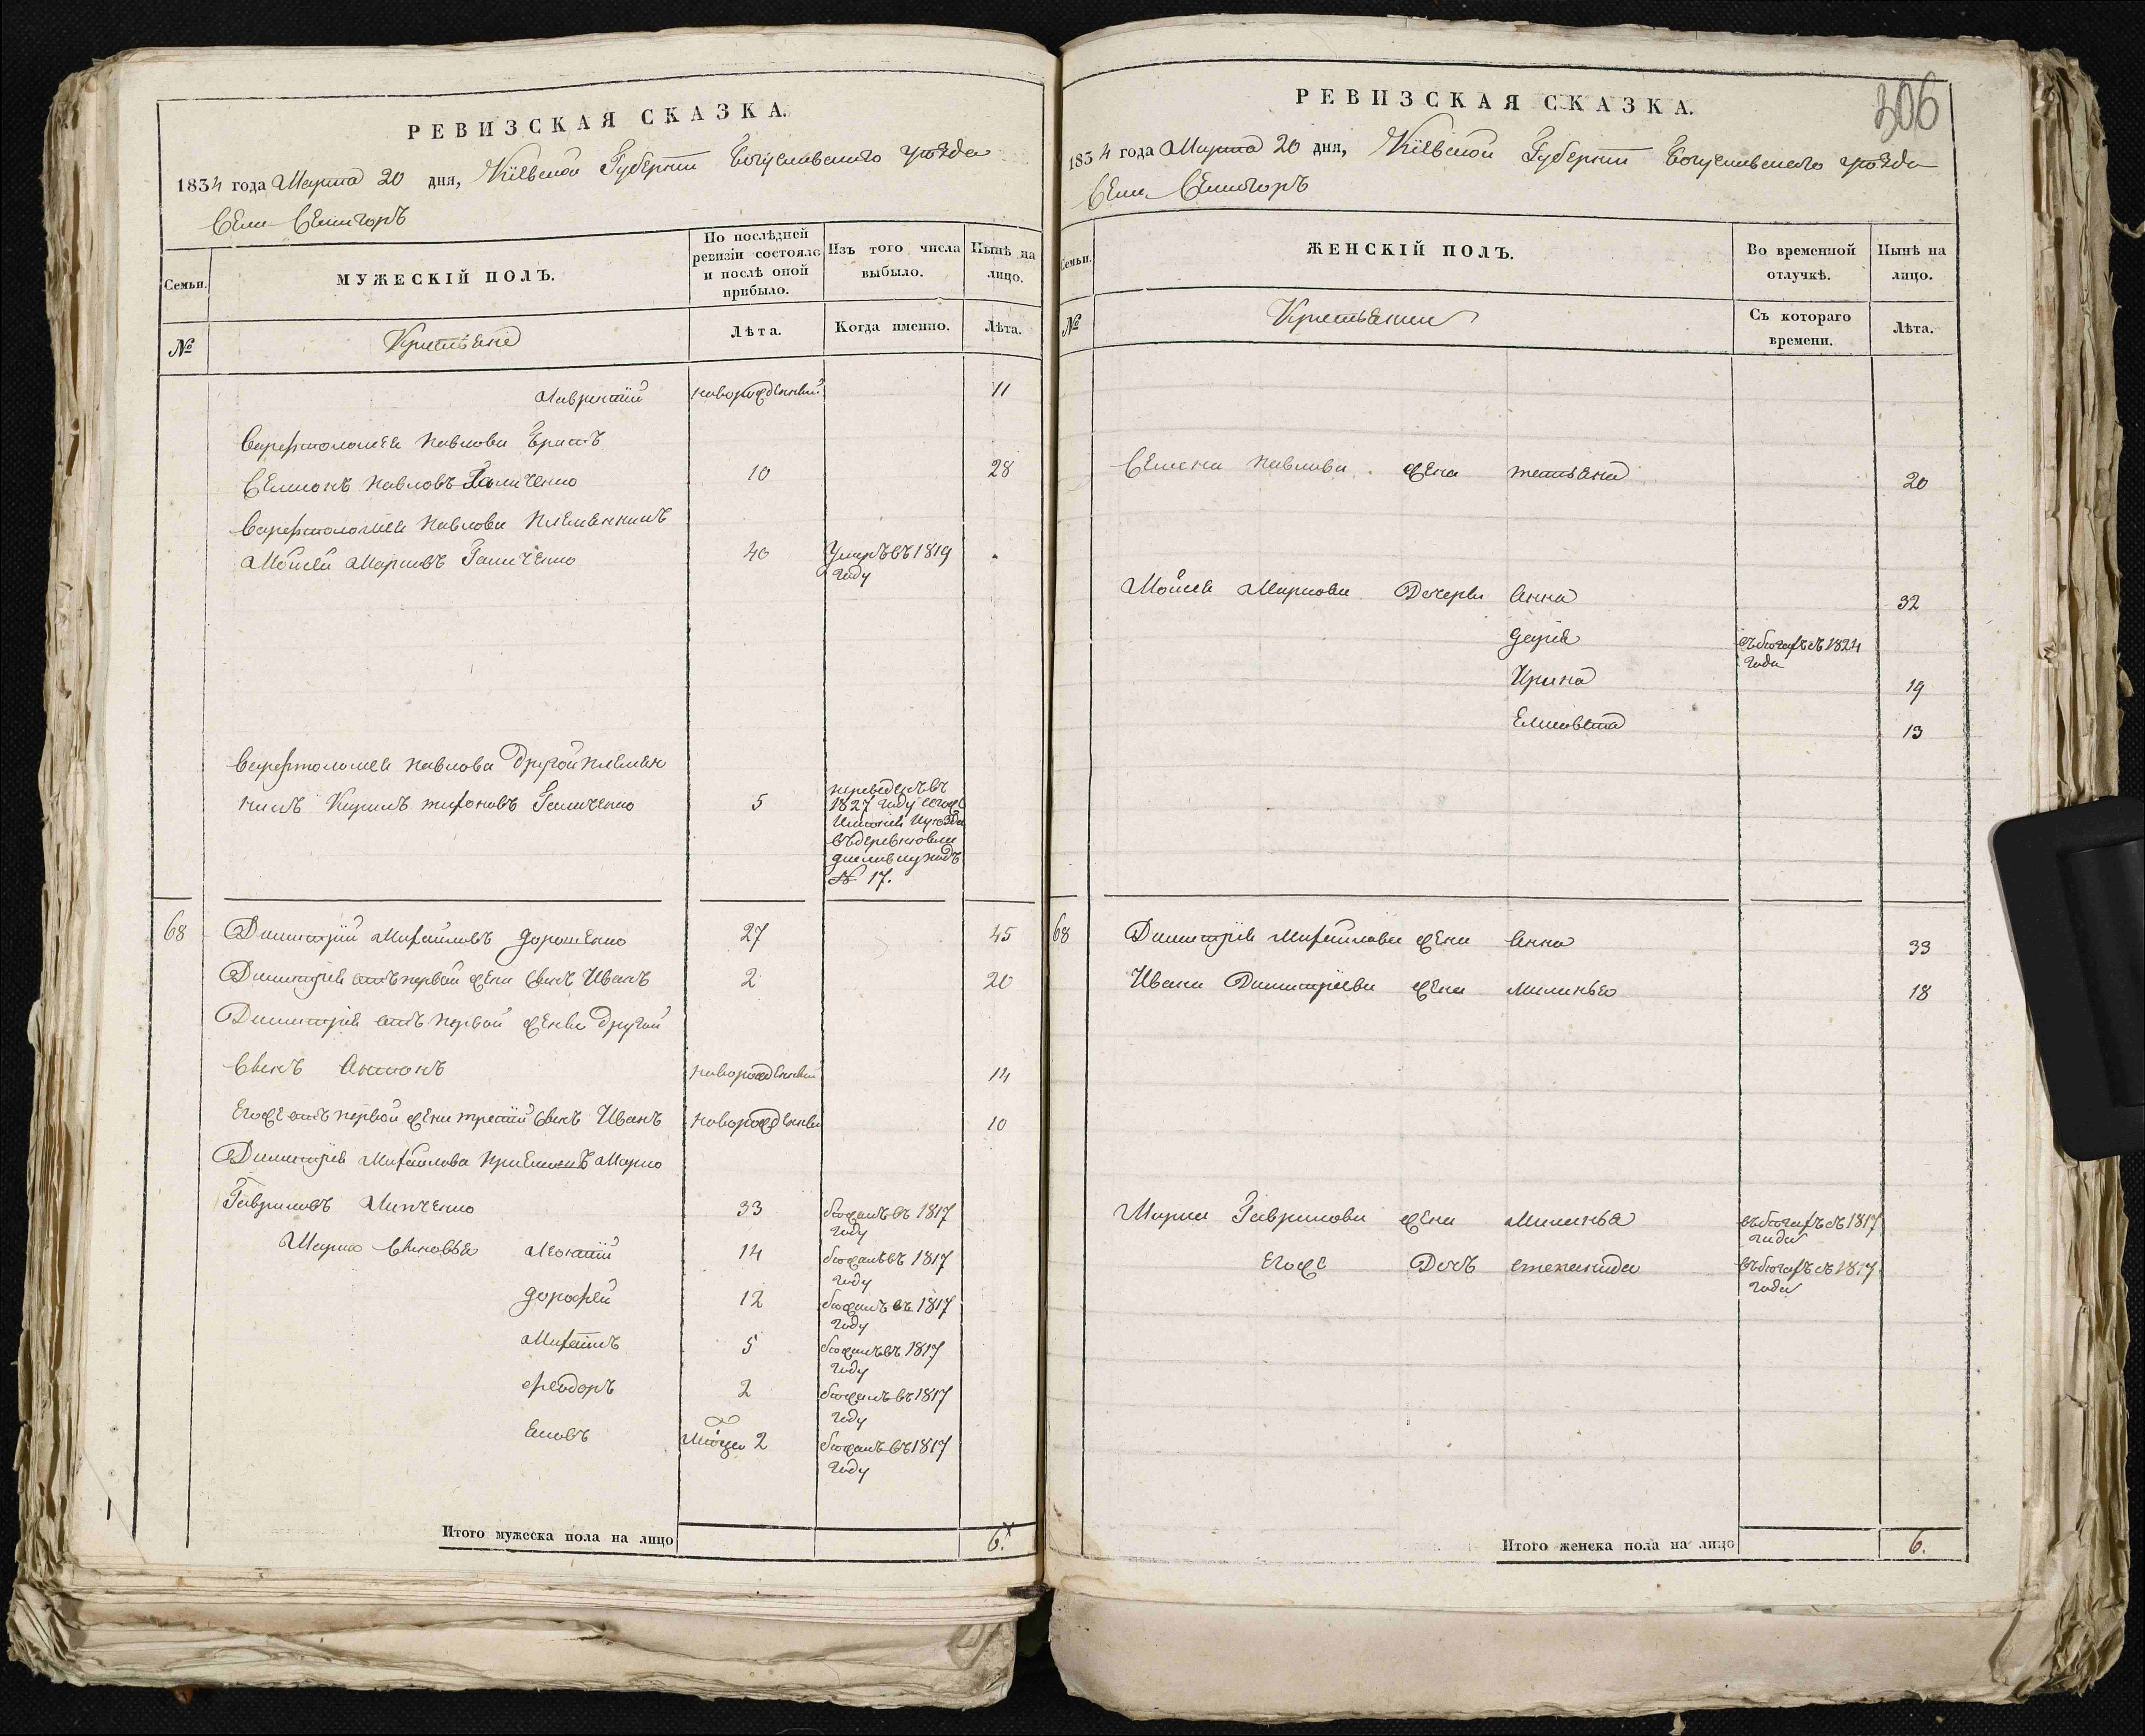 РЕВИЗСКАЯ СКАЗКА.
1834 года Марта 20 дня, Кіевской Губерніи Богуславскаго уѣзда
Села Семигоръ
Семьи.
МУЖЕСКІЙ ПОЛЪ.
По послѣдней ревизіи состояло и послѣ оной прибыло.
Изъ того числа выбыло.
Нынѣ на лицо.
№
Крестьяне
Лѣта.
Когда именно.
Лѣта.
Лаврентій новорожденный 11
Варфтоломея Павлова братъ
Семионъ Павловъ Галиченко 10 28
Варфтоломея Павлова племянникъ
Моисей Марковъ Галиченко 40 Умеръ въ 1819
году
Варфтоломея Павлова другой племян
никъ Кирилъ Тихоновъ Галиченко 5 переведенъ въ
1827 году
въ деревню
№ 17.
68 Димитрій Михайловъ Дорошенко 27 45
Димитрія отъ первой жены сынъ Иванъ 2 20
Димитрія отъ первой жены другой
сынъ Антонъ новорожденный 14
Егоже отъ первой жены третій сынъ Иванъ новорожденный 10
Димитрія Михайлова пріемышъ Марко
Гавриловъ Липченко 33 бежалъ въ 1817
году
Марка сыновья Леонтій 14 бежалъ въ 1817
году
Дорофей 12 бежалъ въ 1817
году
Михайлъ 5 бежалъ въ 1817
году
Феодоръ 2 бежалъ въ 1817
году
Яковъ 2 бежалъ въ 1817
году
Итого мужеска пола на лицо 6.
306
РЕВИЗСКАЯ СКАЗКА.
1834 года Марта 20 дня, Кіевской Губерніи Богуславскаго уѣзда
Села Семигоръ
Семьи.
ЖЕНСКІЙ ПОЛЪ.
Во временной отлучкѣ.
Нынѣ на лицо.
№
Крестьянки
Съ котораго времени.
Лѣта.
Семена Павлова жена Татьяна 20
Моисея Маркова Дочери Анна 32
Дарія въ бегахъ съ 1824
года
Ирина 19
Елисовета 13
68 Димитрія Михайлова жена Анна 33
Ивана Димитріева жена Миланья 18
Марка Гаврилова жена Миланья въ бегахъ съ 1817
года
Егоже Дочь Степанида въ бегахъ съ 1817
года
Итого женска пола на лицо 6.